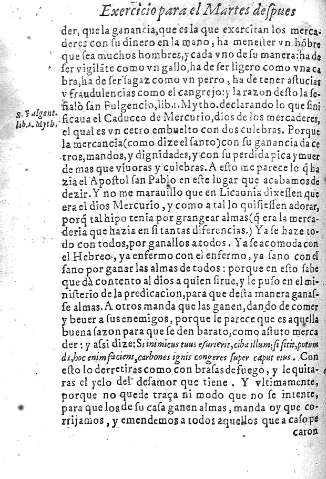 Exercicio para el Martes despues
der, que la ganancia, que es la que exercitan los merca-
deres con su dinero en la mano, ha menester vn hõbre
que sea muchos hombres, y cada vno de su manera: ha de
ser vigilãte como vn gallo, ha de ser ligero como vna ca
bra, ha de ser sagaz como vn perro, ha de tener astucias
y fraudulencias como el cangrejo: y la razon desto la se
ñalò san Fulgencio, lib.1. Mytho. declarando lo que sini
S. Fulgent.
lib.1. Myth.
ficaua el Caduceo de Mercurio, dios de los mercaderes,
el qual es vn cetro embuelto con dos culebras. Porque
la mercancia (como dize el santo) con su ganancia da ce
tros, mandos, y dignidades, y con su perdida pica y muer
de mas que viuoras y culebras. A esto me parece lo q̃ ha
zia el Apostol san Pablo en este lugar que acabamos de
dezir. Y no me marauillo que en Licaonia dixessen que
era el dios Mercurio, y como a tal lo quisiessen adorar,
porq̃ tal hipo tenia por grangear almas (q̃ era la merca-
deria que hazia en si tantas diferencias.) Ya se haze to-
do con todos, por ganallos a todos. Ya se acomoda con
el Hebreo, ya enfermo con el enfermo, ya sano con el
sano por ganar las almas de todos: porque en esto sabe
que dà contento al dios a quien sirue, y le puso en el mi-
nisterio de la predicacion, para que desta manera ganas-
se almas. A otros manda que las ganen, dando de comer
y beuer a sus enemigos, porque le parece que es aquella
buena sazon para que se den barato, como astuto merca
der: y assi dize: Si inimicus tuus esurierit, ciba illum; si sitit, potum
da, hoc enim faciens, carbones ignis congeres super caput eius. Con
esto lo derretiras como con brasas de fuego, y le quita-
ras el yelo del desamor que tiene. Y vltimamente,
porque no quede traça ni modo que no se intente,
para que los de su casa ganen almas, manda oy que co-
rrijamos, y emendemos a todos aquellos que a caso pe
caron